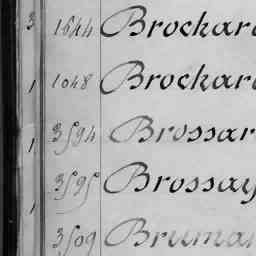 3 1644 Brockard
1 1048 Brockard
1 3594 Brossar
1 3595 Brossay
3509 Bruman